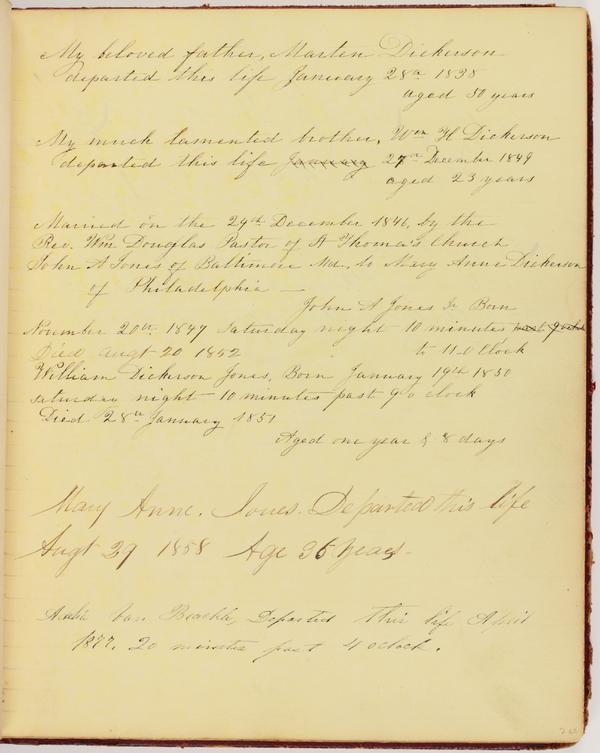 My beloved father, Martin Dickerson
departed this life January 28th 1838
aged 50 years
My much lamented brother, Wm H Dickerson
departed this life January 27th December 1849
aged 23 years
Married on the 29th December 1846, by the
Rev. Wm Douglas Pastor of St Thomas's Church
John A Jones of Baltimore Md, to Mary Anne Dickerson
of Philadelphia —
John A Jones Jr Born
November 20th 1847 Saturday night 10 minutes past 9 o'clock
Died Augt 20 1852 to 11 o Clock
William Dickerson Jones, Born January 19th 1850
Saturday night 10 minutes past 9 o clock
Died 28th January 1851
Aged one year & 8 days
Mary Anne. Jones. Departed this life
Augt 29 1858 Age 36 years.
van Departed this life April
1877. 20 minutes past 4 oclock.